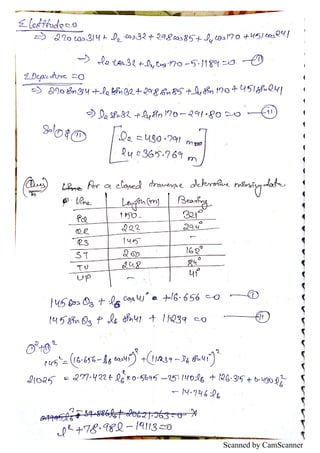 Σ Latitude = 0
⇒ 270 cos 314 + l2 cos 32 + 298 cos 85 + l4 cos 170 + 451 cos 241
→ l2 cos 32 + l4 cos 170 - 5.1189 = 0 → (I)
Σ Departure = 0
⇒ 270 sin 314 + l2 sin 32 + 298 sin 85 + l4 sin 170 + 451 sin 241
⇒ l2 sin 32 + l4 sin 170 - 291.80 = 0 → (II)
l2 = 490.791 m
l4 = 365.769 m
For a closed traverse determine missing data
Line Length (m) Bearing
PQ 190. 321°
QR 222 294°
RS 145 -
ST 260 168°
TU 248 84°
UP - 41°
145 cos θ3 + l6 cos 41° + 16.656 = 0 → (I)
145 sin θ3 + l6 sin 41 + 11.239 = 0 → (II)
(I)² + (II)²
145² = (16.656 - l6 cos 41)² + (11.239 - l6 sin 41)²
21025 = 277.422 + l6² × 0.5695 - 25.140 l6 + 126.315 + 0.430 l6²
- 14.746 l6
l² + 78.98 l - 19113 = 0
Scanned by CamScanner